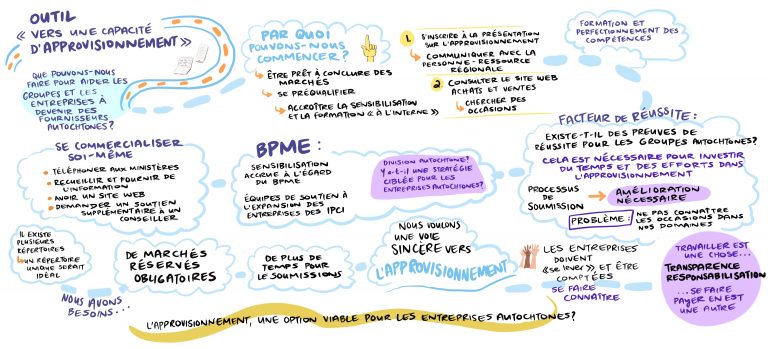 OUTIL
« VERS UNE CAPACITÉ
D'APPROVISIONNEMENT »
QUE POUVONS-NOUS
FAIRE POUR AIDER LES
GROUPES ET LES
ENTREPRISES À
DEVENIR DES
FOURNISSEURS
AUTOCHTONES?
PAR QUOI
POUVONS-NOUS
COMMENCER?
ÊTRE PRÊT À CONCLURE DES
MARCHÉS
SE PRÉQUALIFIER
ACCROÎTRE LA SENSIBILISATION
ET LA FORMATION « À L'INTERNE »
1. S'INSCRIRE À LA PRÉSENTATION
SUR L'APPROVISIONNEMENT
COMMUNIQUER AVEC LA
PERSONNE-RESSOURCE
RÉGIONALE
2. CONSULTER LE SITE WEB
ACHATS ET VENTES
CHERCHER DES
OCCASIONS
FORMATION ET
PERFECTIONNEMENT DES
COMPÉTENCES
SE COMMERCIALISER
SOI-MÊME
• TÉLÉPHONER AUX MINISTÈRES
• RECUEILLIR ET FOURNIR DE
L'INFORMATION
• AVOIR UN SITE WEB
• DEMANDER UN SOUTIEN
SUPPLÉMENTAIRE À UN
CONSEILLER
BPME :
SENSIBILISATION
ACCRUE À L'ÉGARD
DU BPME
ÉQUIPES DE SOUTIEN À
L'EXPANSION DES
ENTREPRISES DES IPCI
DIVISION AUTOCHTONE?
Y a-t-il UNE STRATÉGIE
CIBLÉE POUR LES
ENTREPRISES AUTOCHTONES?
FACTEUR DE RÉUSSITE :
EXISTE-T-IL DES PREUVES DE
RÉUSSITE POUR LES GROUPES AUTOCHTONES?
CELA EST NÉCESSAIRE POUR INVESTIR
DU TEMPS ET DES EFFORTS DANS
L'APPROVISIONNEMENT
PROCESSUS
DE
SOUMISSION
AMÉLIORATION
NÉCESSAIRE
PROBLÈME :
NE PAS CONNAÎTRE
LES OCCASIONS DANS
NOS DOMAINES
IL EXISTE
PLUSIEURS
RÉPERTOIRES
UN RÉPERTOIRE
UNIQUE SERAIT
IDÉAL
NOUS AVONS
BESOINS...
DE MARCHÉS
RÉSERVÉS
OBLIGATOIRES
DE PLUS DE
TEMPS POUR
LE SOUMISSIONS
NOUS VOULONS
UNE VOIE
SINCÈRE VERS
L'APPROVISIONNEMENT
LES ENTREPRISES
DOIVENT
« se lever » ET ÊTRE
COMPTÉES
SE FAIRE
CONNAÎTRE
TRAVAILLER EST
UNE CHOSE...
TRANSPARENCE
RESPONSABILISATION
...SE FAIRE
PAYER EN EST
UNE AUTRE
L'APPROVISIONNEMENT, UNE OPTION VIABLE POUR LES ENTREPRISES AUTOCHTONES?